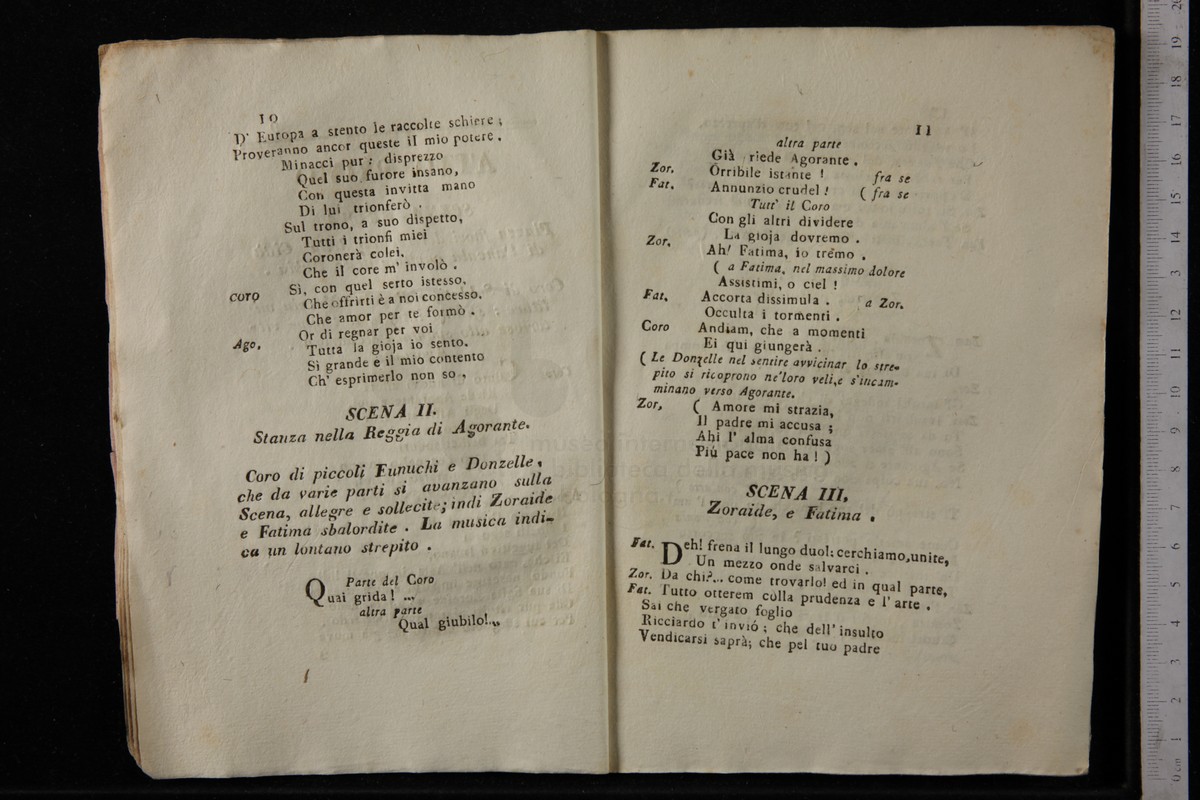 10
D' Europa a stento le raccolte schiere ;
Proveranno ancor queste il mio potere .
Minacci pur : disprezzo
Quel suo furore insano,
Con questa invitta mano
Di lui trionferò .
Sul trono, a suo dispetto,
Tutti i trionfi miei
Coronerà colei,
Che il core m' involò .
Coro Sì, con quel serto istesso,
Che offrirti è a noi concesso,
Che amor per te formò .
Or di regnar per voi
Ago. Tutta la gioja io sento.
Sì grande e il mio contento
Ch' esprimerlo non so .
SCENA II.
Stanza nella Reggia di Agorante.
Coro di piccoli Eunuchi e Donzelle,
che da varie parti si avanzano sulla
Scena, allegre e sollecite; indi Zoraide
e Fatima sbalordite . La musica indi-
ca un lontano strepito .
Parte del Coro
Quai grida! ...
altra parte
Qual giubilo!...
11
altra parte
Già riede Agorante .
Zor. Orribile istante ! fra se
Fat. Annunzio crudel ! ( fra se
Tutt' il Coro
Con gli altri dividere
La gioja dovremo .
Zor. Ah! Fatima, io tremo .
( a Fatima, nel massimo dolore
Assistimi, o ciel !
Fat. Accorta dissimula . a Zor.
Occulta i tormenti .
Coro Andiam, che a momenti
Ei qui giungerà .
( Le Donzelle nel sentire avvicinar lo stre-
pito si ricoprono ne'loro veli, e s'incam-
minano verso Agorante.
Zor, ( Amore mi strazia,
Il padre mi accusa ;
Ahi l' alma confusa
Più pace non ha ! )
SCENA III,
Zoraide, e Fatima .
Fat. Deh! frena il lungo duol: cerchiamo, unite,
Un mezzo onde salvarci .
Zor. Da chi?... come trovarlo! ed in qual parte,
Fat. Tutto otterem colla prudenza e l' arte .
Sai che vergato foglio
Ricciardo t' invió ; che dell' insulto
Vendicarsi saprà; che pel tuo padre